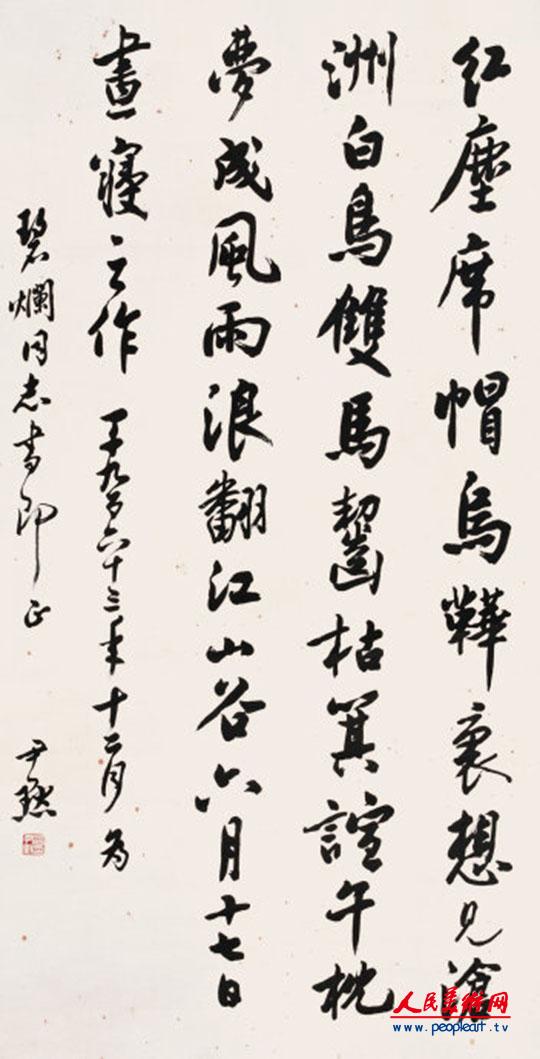 紅塵席帽烏鞾裏想見滄
洲白鳥雙馬齧枯萁諠午枕
夢成風雨浪翻江山谷六月十七日
晝寢之作 一千九百六十三年十二月為
碧爛同志書即正 尹默
人民美術网
www.peopleart.tv